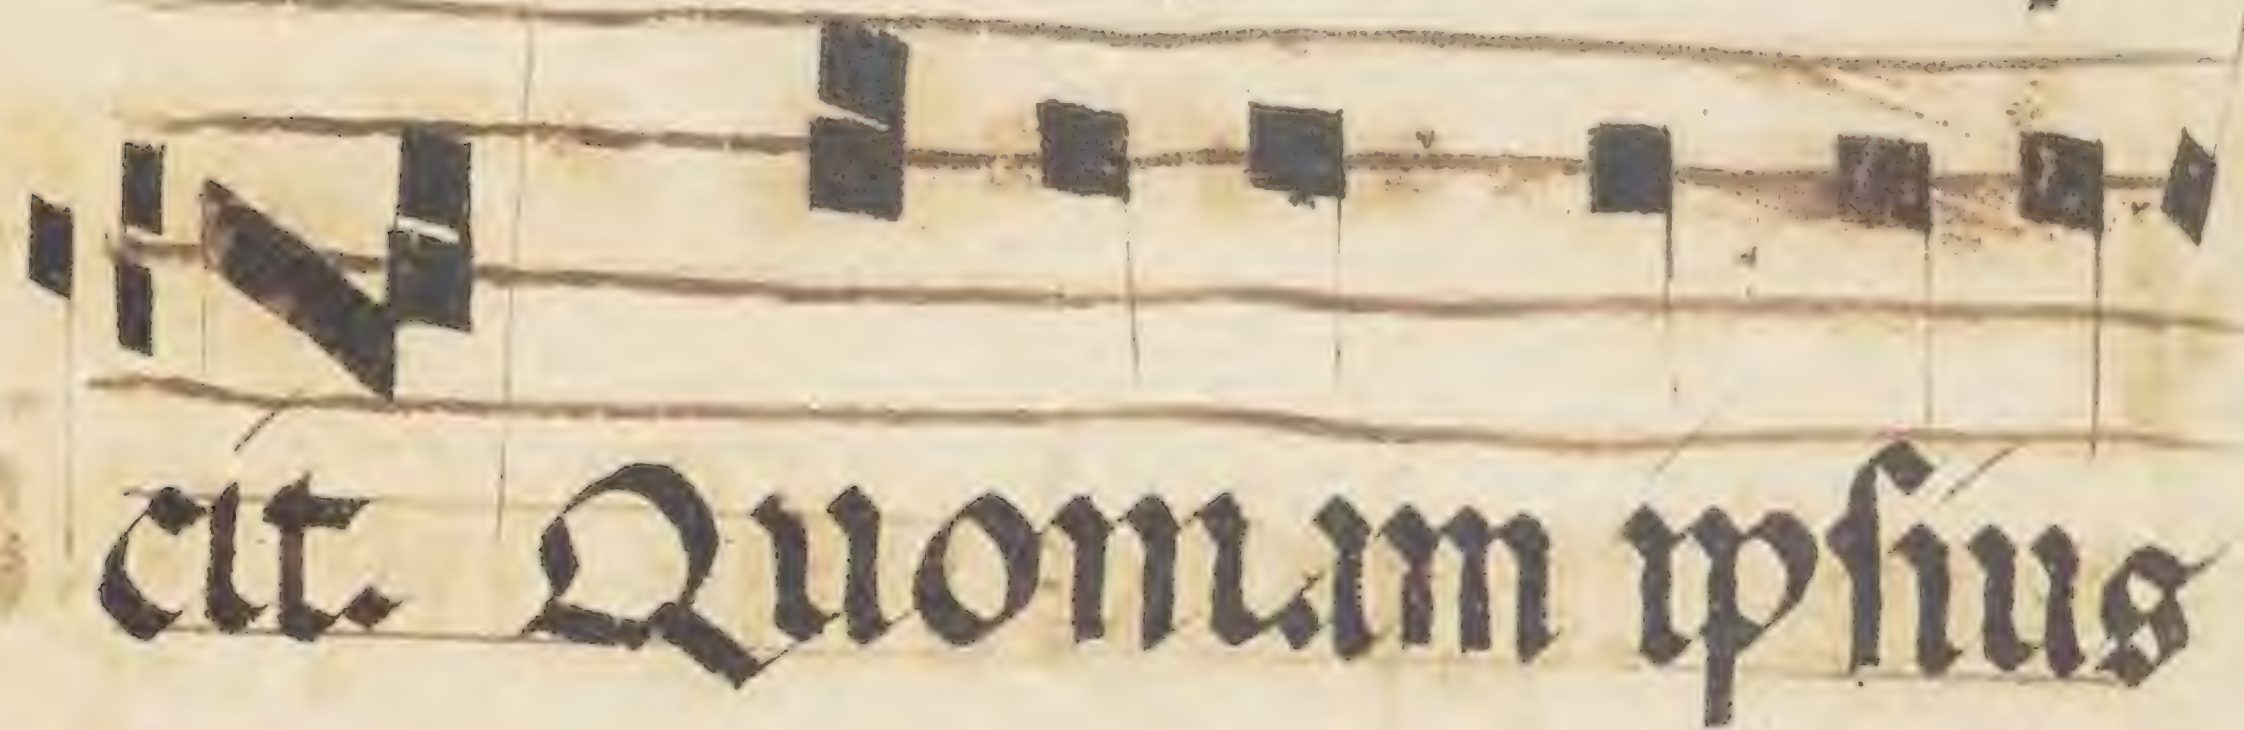 cit. Quoniam ipsius